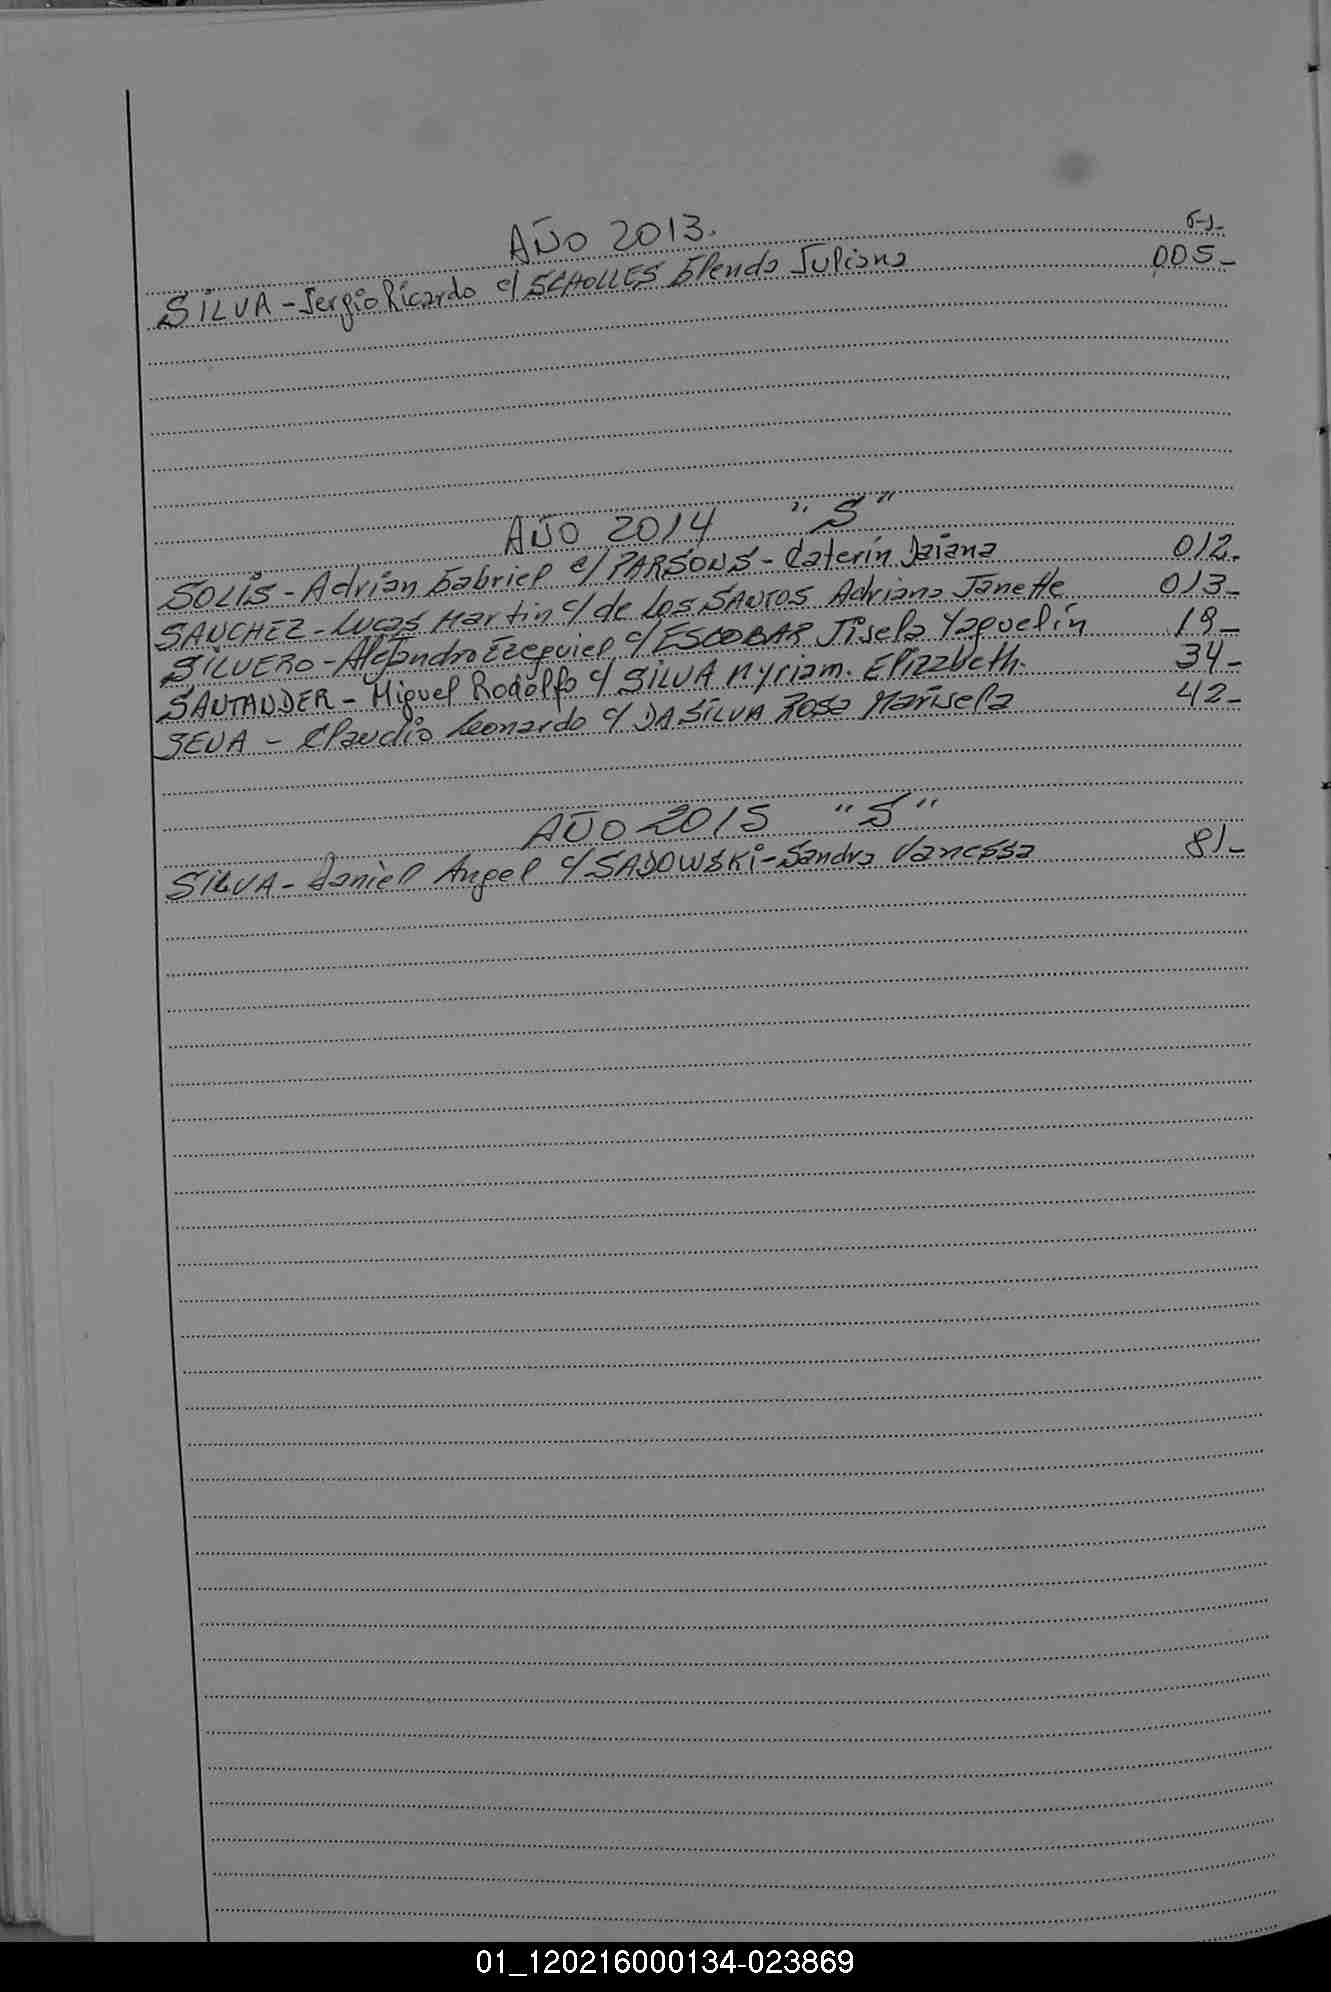 AÑO 2013.
SILVA - Sergio Ricardo c/ SCHOLLES Glenda Juliana 005-
AÑO 2014 "S"
SOLIS - Adrián Gabriel c/ PARSONS - Caterín Daiana 012.
SANCHEZ - Lucas Martin c/ de los SANTOS Adriana Janette 013-
SILVERO - Alejandro Ezequiel c/ ESCOBAR Jisela Yaquelín 18-
SANTANDER - Miguel Rodolfo c/ SILVA Myriam. Elizabeth. 34-
SENA - Claudio Leonardo c/ DA SILVA Rosa Marisela 42-
AÑO 2015 "S"
SILVA - Daniel Angel c/ SADOWSKI - Sandra Vanessa 81-
01_120216000134-023869